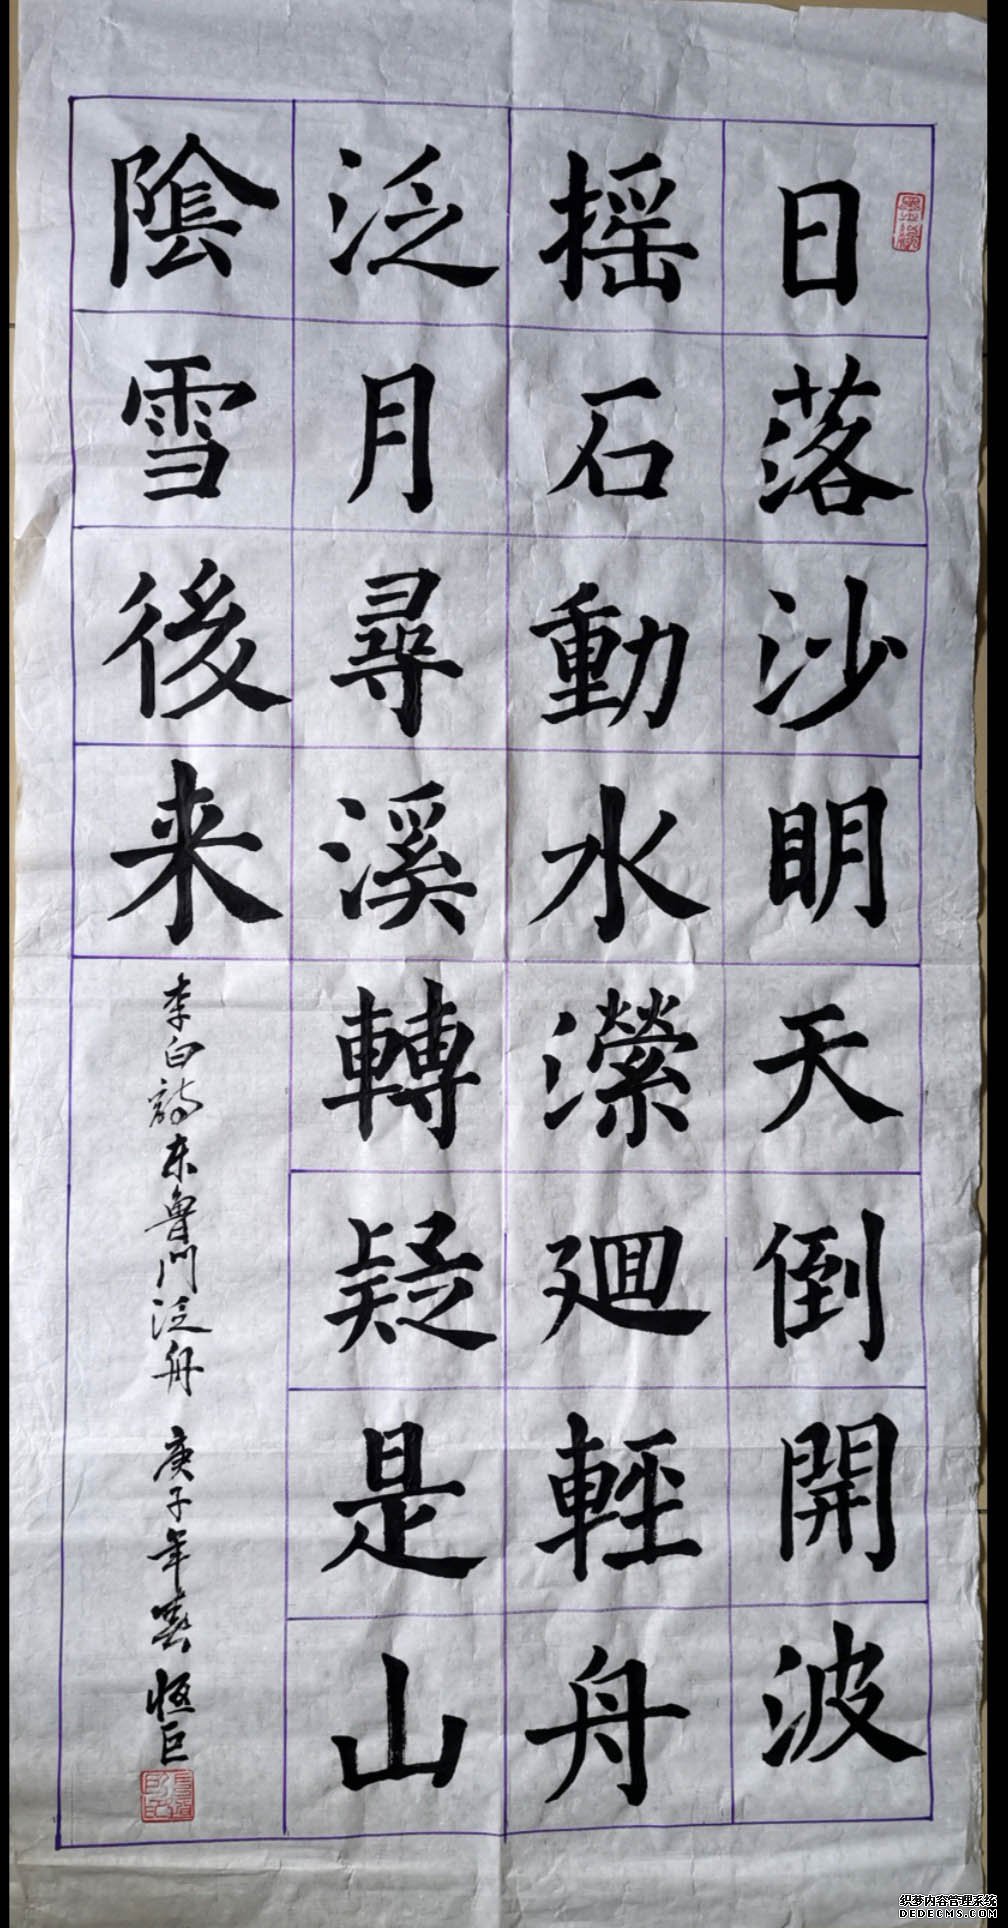 日落沙明天倒開波
摇石動水瀠廻輕舟
泛月尋溪轉疑是山
陰雪後来
李白詩東魯門泛舟 庚子年 恒巨
织梦内容管理系统
DEDECMS.COM